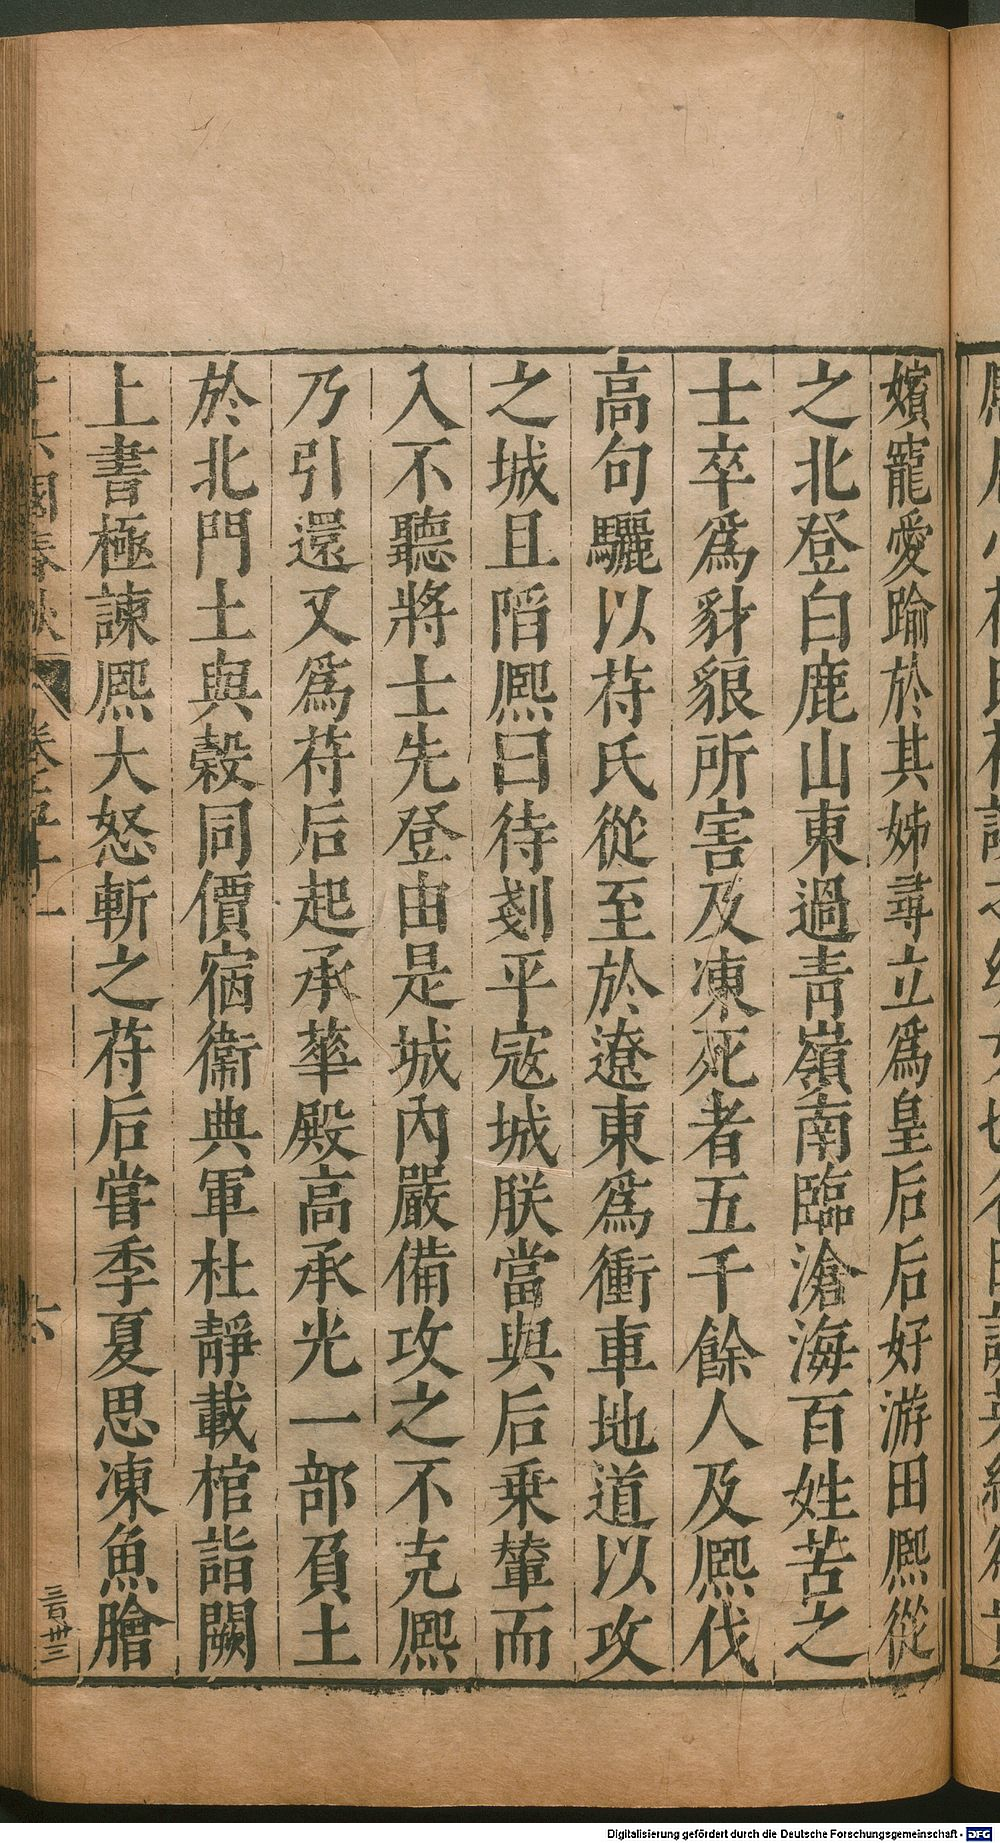 嬪寵愛踰於其姊尋立爲皇后后好游田熙從
之北登白鹿山東過靑嶺南臨滄海百姓苦之
士卒爲豺狼所害及凍死者五千餘人及熙伐
高句驪以苻氏從至於遼東爲衝車地道以攻
之城且陷熙曰待剗平寇城朕當與后乗輦而
入不聽將士先登由是城內嚴備攻之不克熙
乃引還又爲苻后起承華殿高承光一部負土
於北門土與穀同價宿衞典軍杜靜載棺詣闕
上書極諫熙大怒斬之苻后嘗季夏思凍魚膾
十六國春秋
六
三百卅三
Digitalisierung gefördert durch die Deutsche Forschungsgemeinschaft - DFG